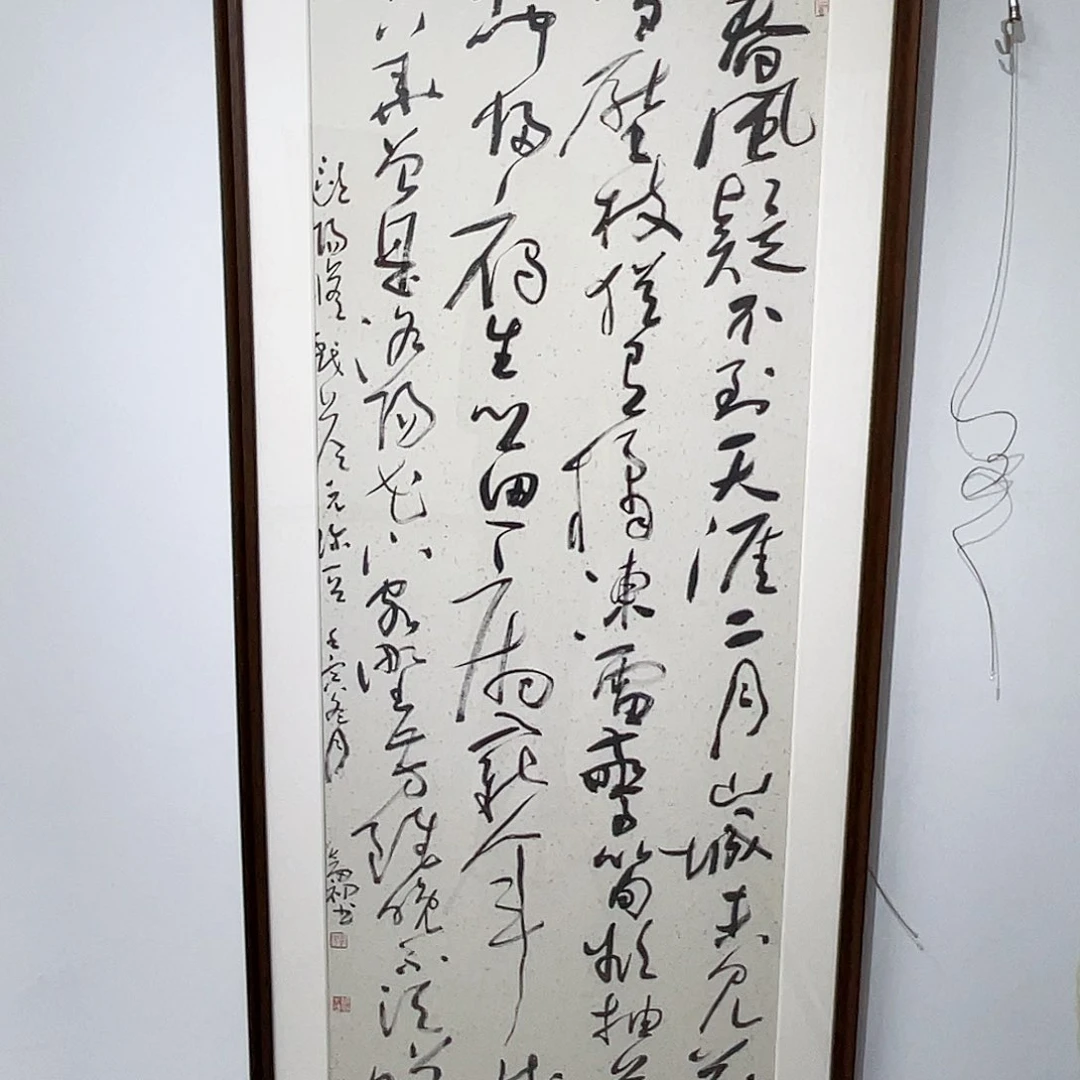 春風疑不到天涯二月山城未見花
雪壓枝猶有橘凍雷驚筍欲抽芽
聞歸雁生鄉思病入新年感
物華曾是洛陽花下客野芳雖晚不須嗟
歐陽修戲答元珍 壬寅冬月 書